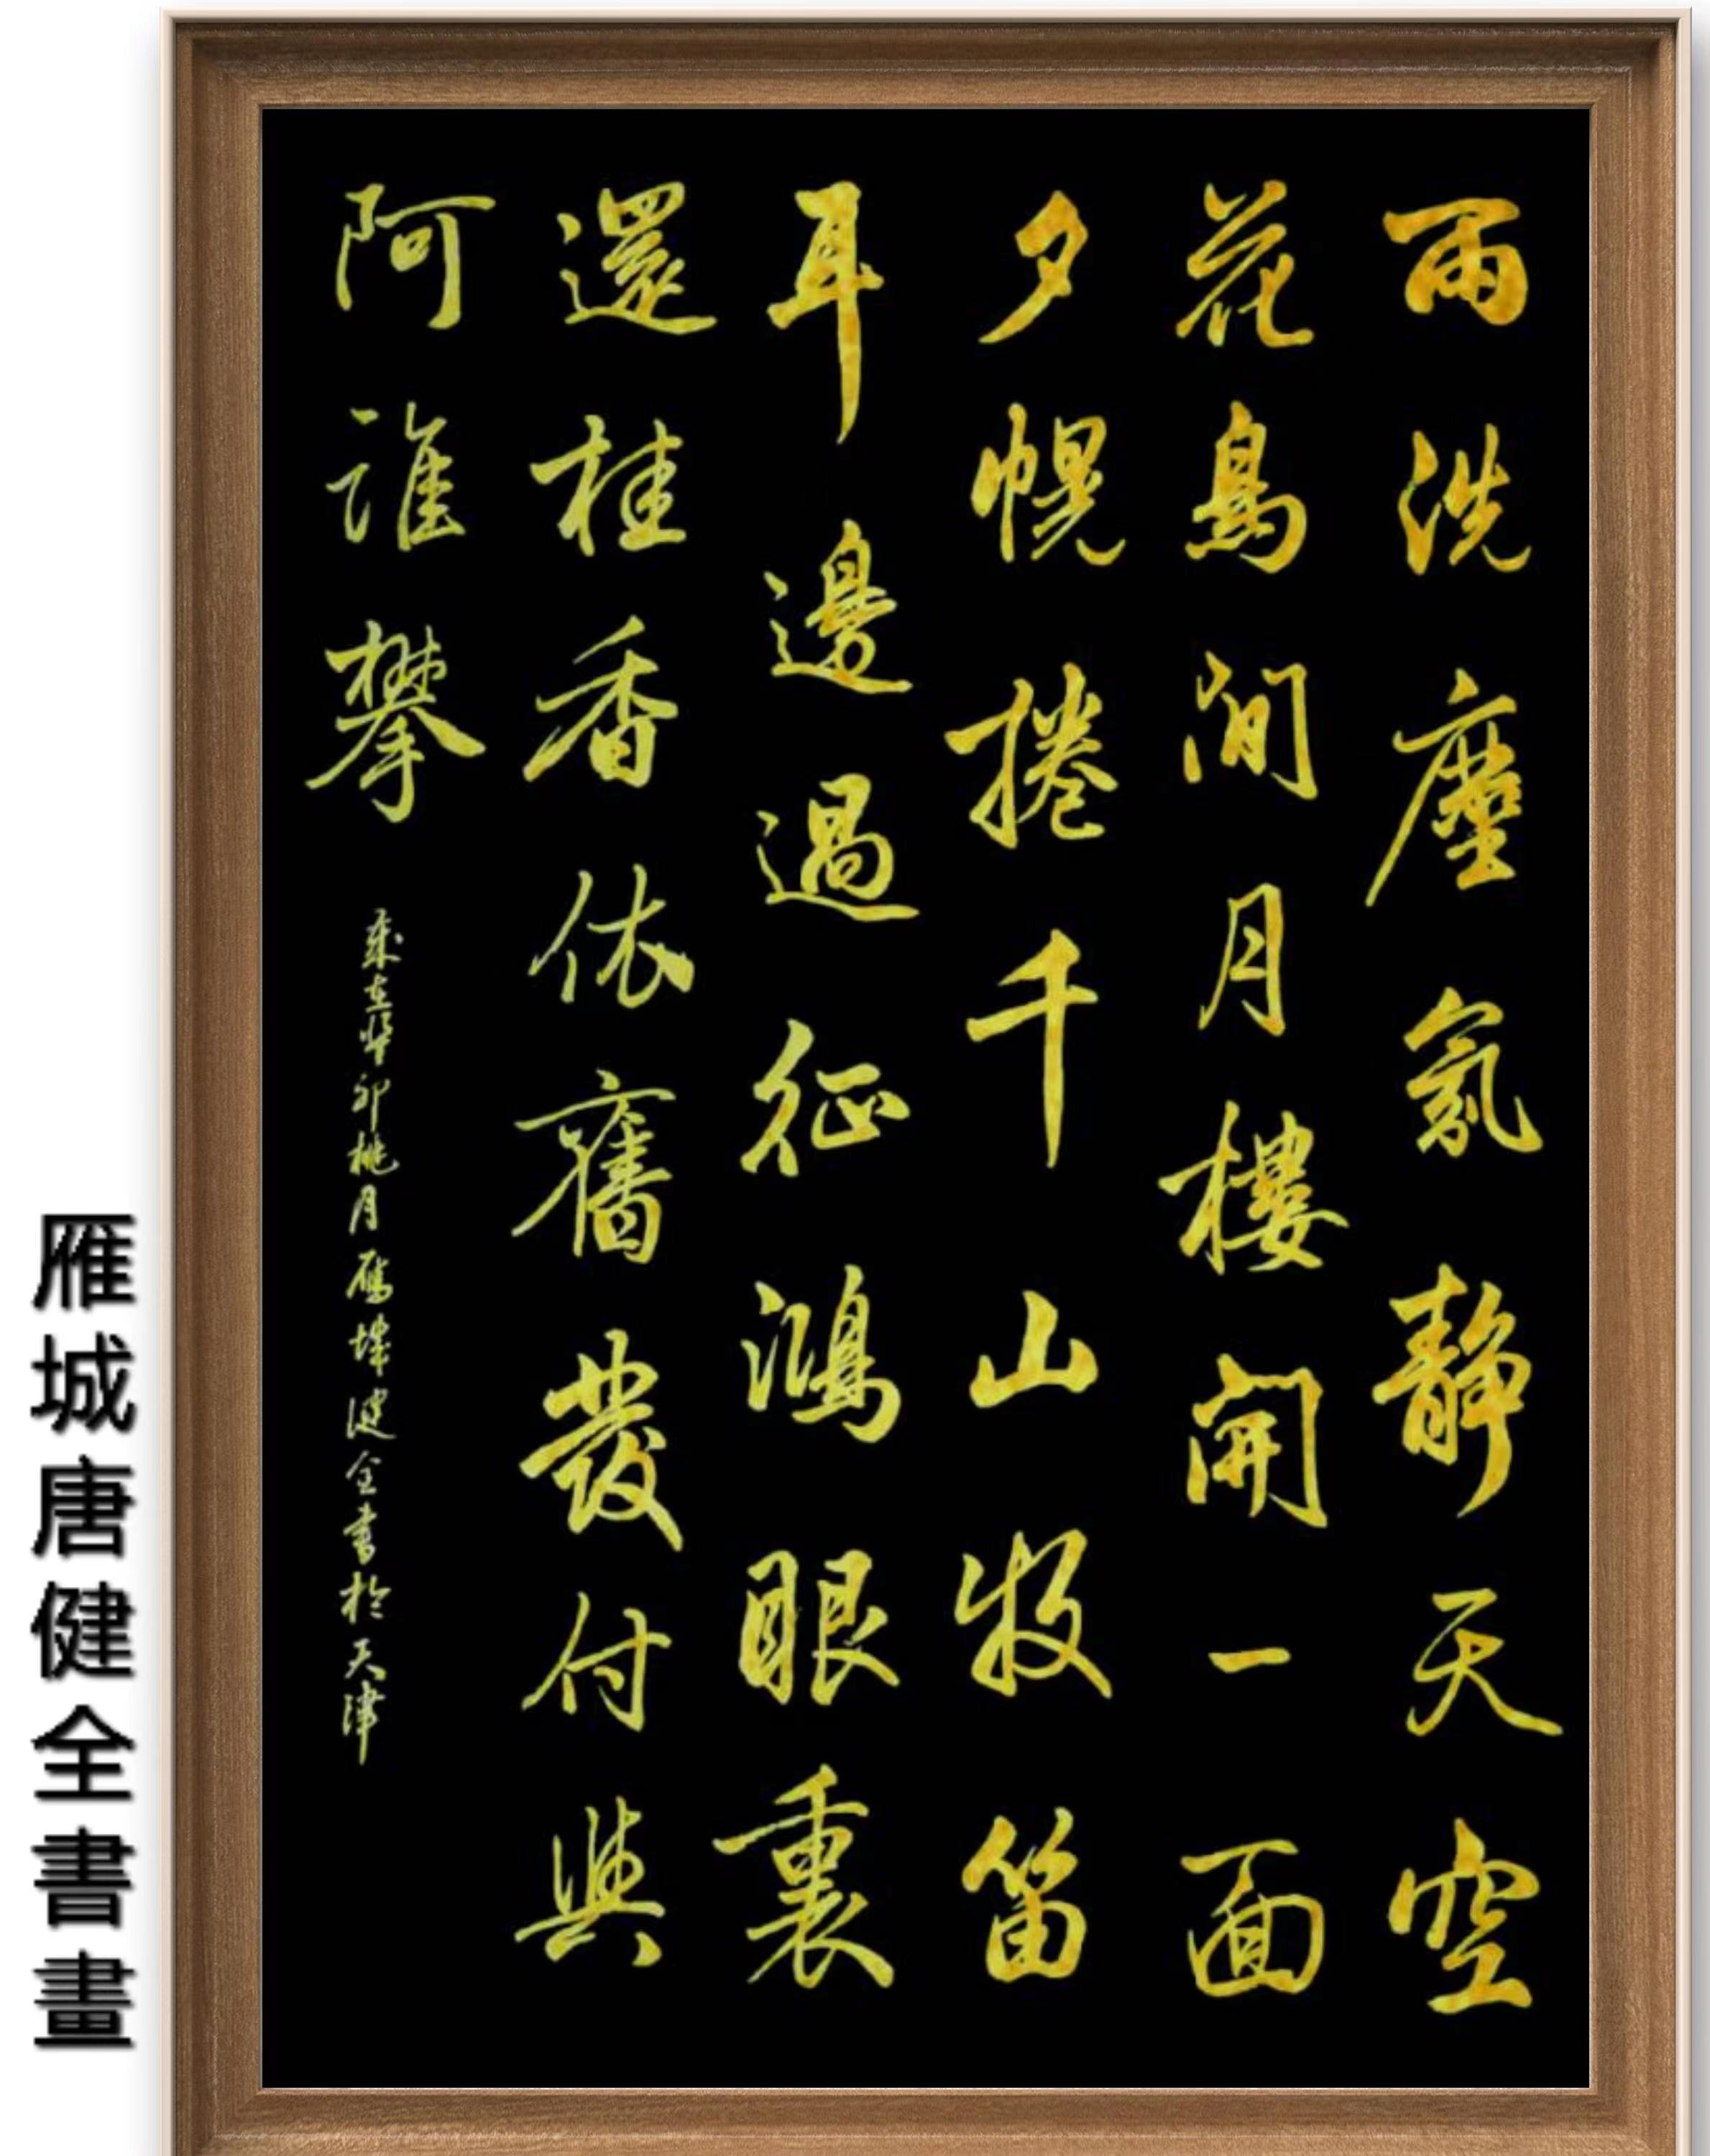 雨洗塵氛靜天空
花鳥間月樓開一面
夕幌捲千山牧笛
耳邊過征鴻眼裏
還桂香依舊發付與
阿誰攀
歲在癸卯桃月鴈城健全書於天津
雁城唐健全書畫